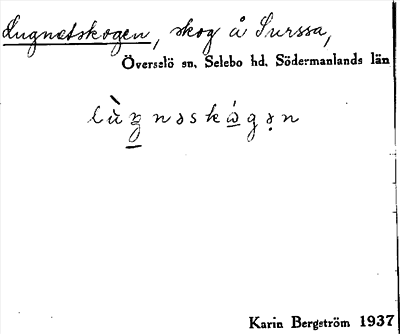 Lugnetskogen, skog å Surssa,
Överselö sn, Selebo hd, Södermanlands län
Karin Bergström 1937